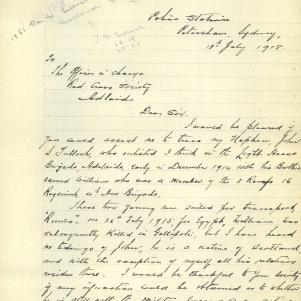 Police Station
Petersham, Sydney,
18th July 1918.
To
The Officer in charge
Red Cross Society
Adelaide
Dear Sir.
I would be pleased if
you could assist me to trace my Nephew, John
S Tulloch, who enlisted I think in the Light Horse
Brigade Adelaide, early in December 1914 with his Brother
named William who was a member of the 16
Regiment, 4th Aus Brigade,
These two young men sailed per transport
on 26th July 1915, for Egypt, William was
subsequently killed in Gallipoli, but I have heard
no tidings of John, he is a native of Scotland
and with the exception of myself all his relatives
reside there. I would be thankful to you
if any information could be obtained as to whether
he is still with the